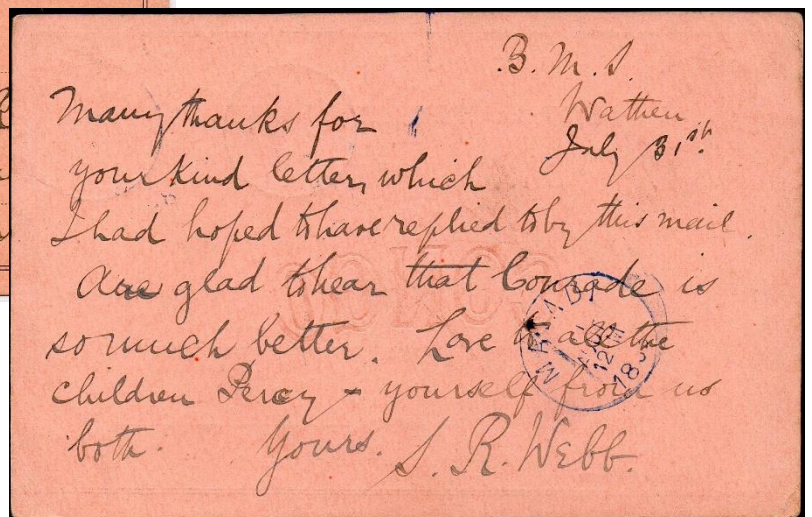 B. M. S.
Wathen
July 31st.
Many thanks for
your kind letter, which
I had hoped to have replied to by this mail.
Are glad to hear that Conrade is
so much better. Love to all the
children Percy & yourself from us
both. Yours. S. R. Webb.
MATADI
12